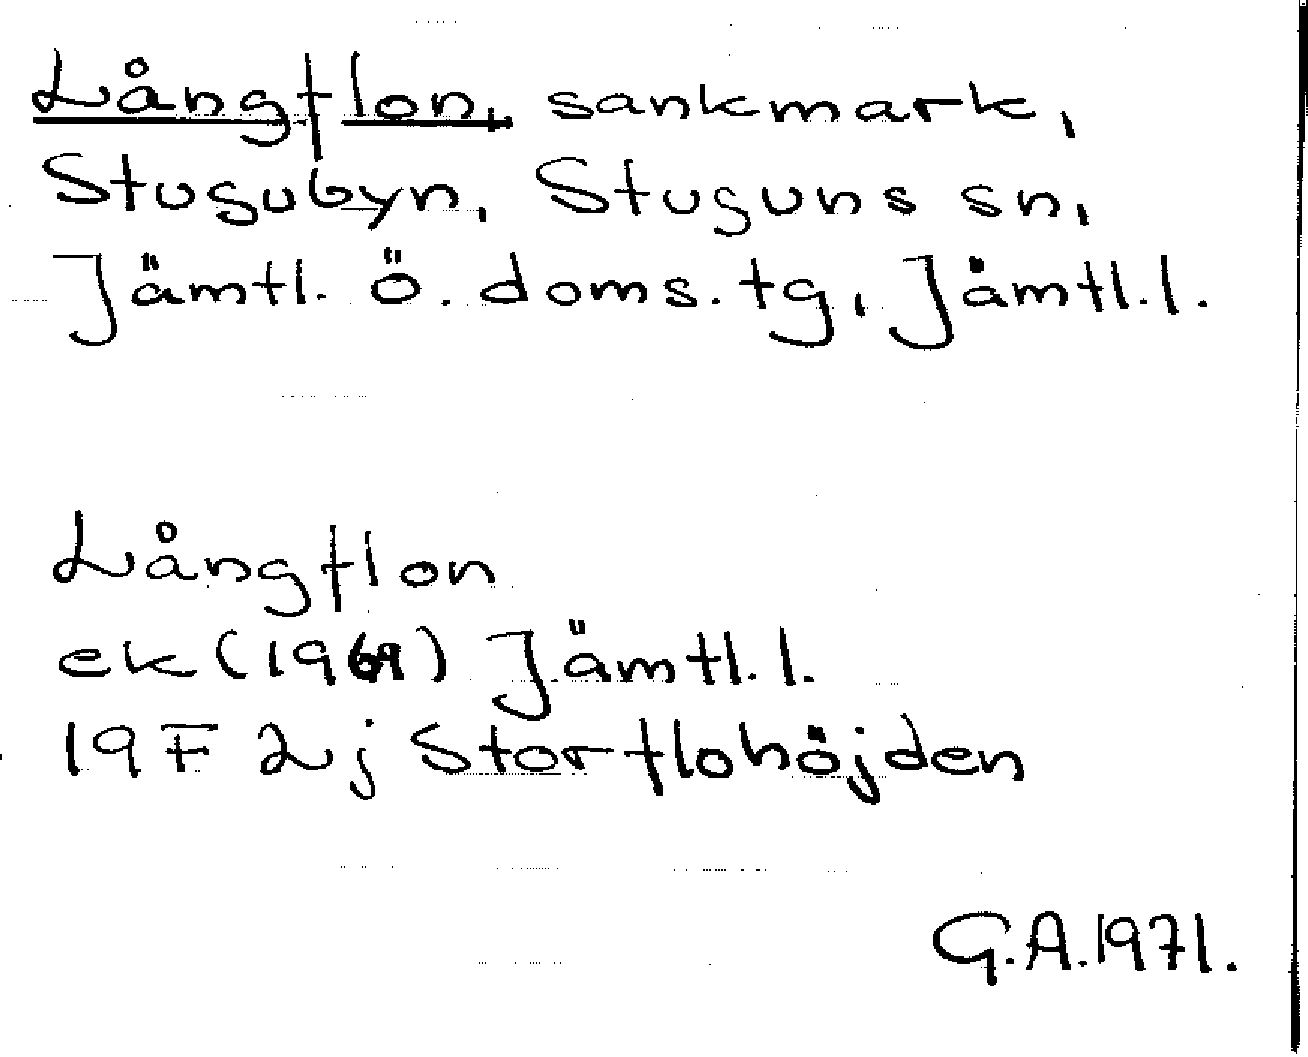 Långflon, sankmark,
Stugubyn, Stuguns sn,
Jämtl. ö. doms. tg, Jämtl. l.
Långflon
ek (1969) Jämtl. l.
19 F 2j Storflohöjden
G.A. 1971.